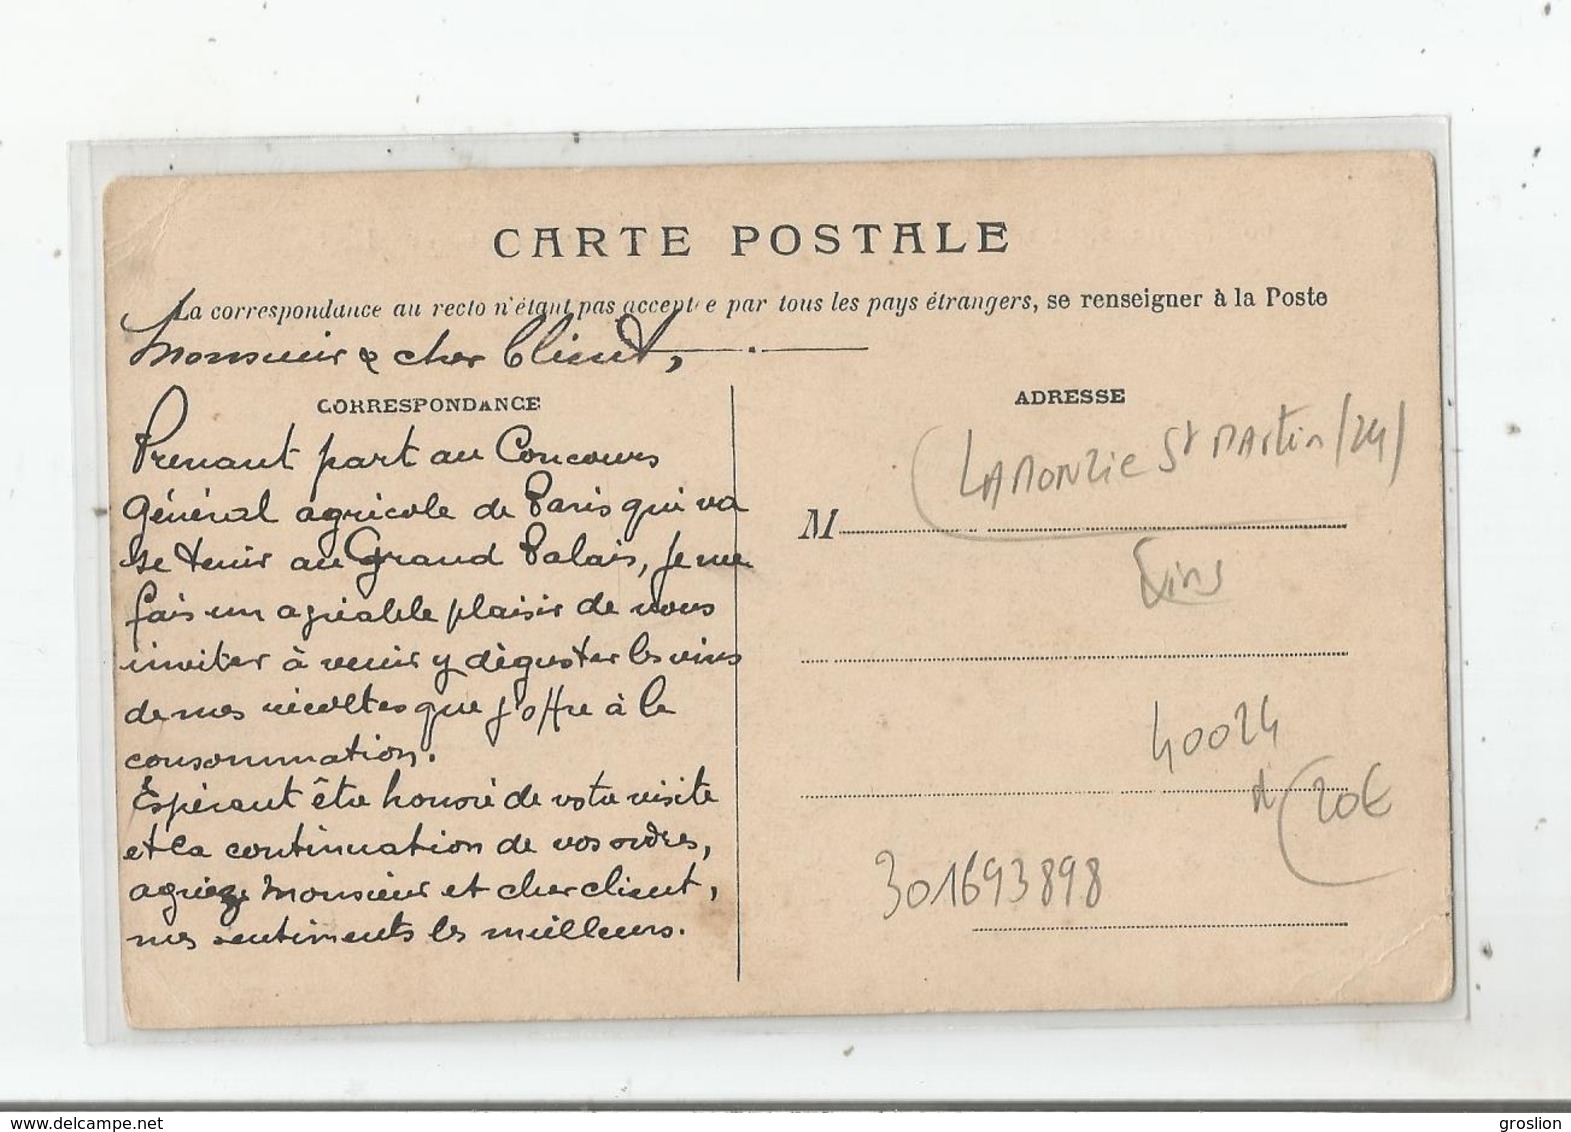 CARTE POSTALE
La correspondance au recto n'étant pas acceptée par tous les pays étrangers, se renseigner à la Poste
Monsieur & cher Client,
CORRESPONDANCE
Prenant part au Concours
Général agricole de Paris qui va
se tenir au Grand Palais, je me
fais un agréable plaisir de vous
inviter à venir y déguster les vins
de mes récoltes que j'offre à la
consommation.
Espérant être honoré de votre visite
et la continuation de vos ordres,
agréez Monsieur et cher client,
mes sentiments les meilleurs.
ADRESSE
LAMONZie St MARtin (24)
M
Vins
40024
20€
301693898
groslion